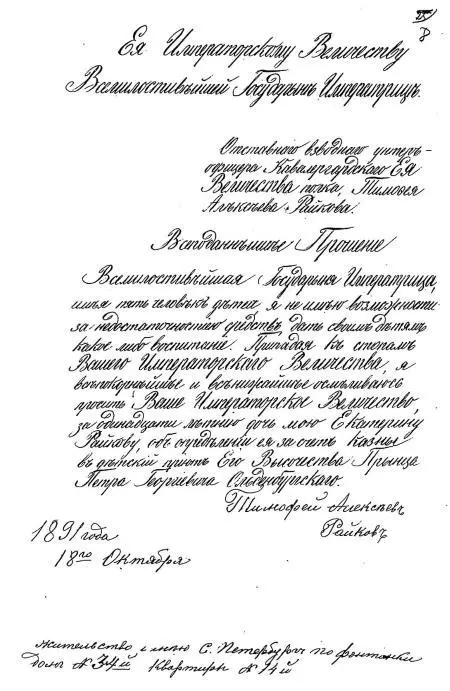 25
Ея Императорскому Величеству
Всемилостивѣйшей Государынѣ Императрицѣ
Отставного взводнаго унтеръ-
офицера Кавалергардскаго Ея
Величества полка, Тимофея
Алексѣева Райкова.
Всеподданнѣйшее Прошеніе
Всемилостивѣйшая Государыня Императрица,
имѣя пять человѣкъ дѣтей я не имѣю возможности
за недостаточностію средствъ дать своимъ дѣтямъ
какое либо воспитаніе. Припадая къ стопамъ
Вашего Императорскаго Величества, я
всепокорнѣйше и осмѣливаюсь
просить Ваше Императорское Величество,
за одинадцати лѣтнюю дочь мою Екатерину
Райкову, объ опредѣленіи ея за счетъ казны
въ дѣтскій пріютъ Его Высочества Принца
Петра Георгіевича Ольденбургскаго.
Тимофей Алексѣевъ
Райковъ
1891 года
18го Октября
жительство имѣю С. Петербургъ по фонтанки
домъ № 34й квартира № 14й